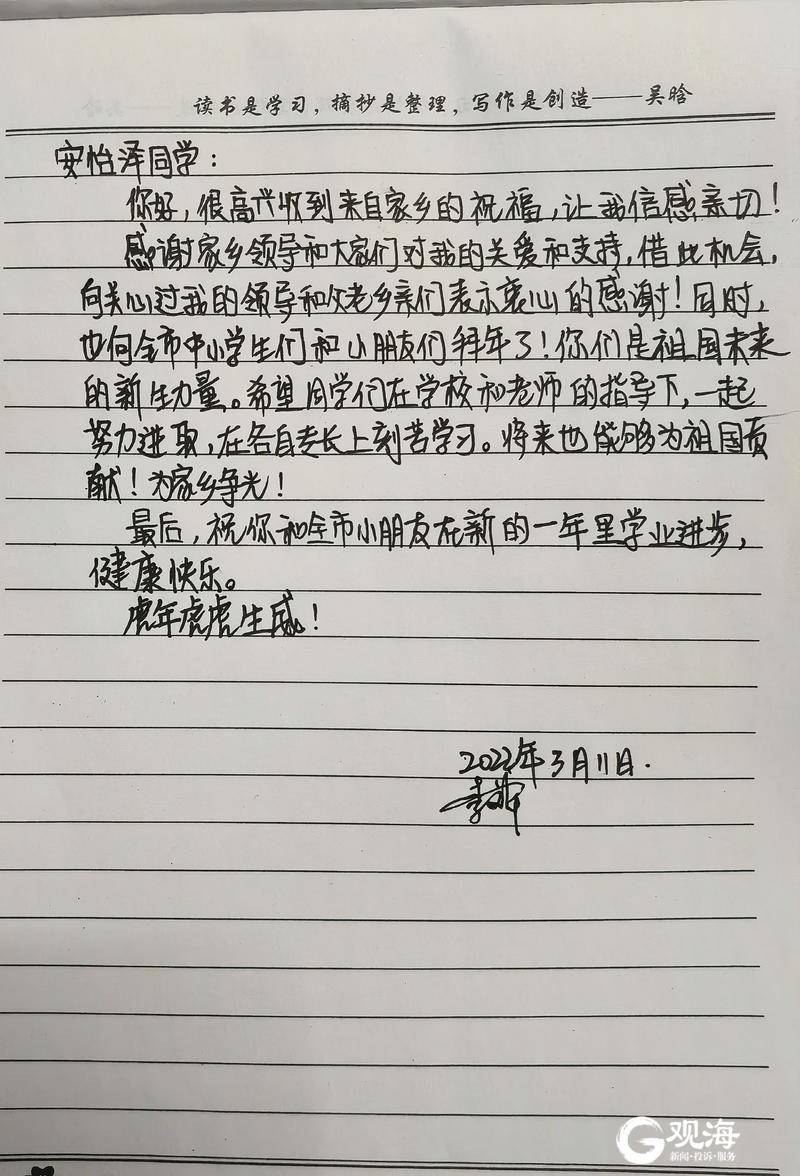 读书是学习，摘抄是整理，写作是创造——吴晗
安怡泽同学：
你好，很高兴收到来自家乡的祝福，让我倍感亲切！
感谢家乡领导和大家们对我的关爱和支持，借此机会，
向关心过我的领导和父老乡亲们表示衷心的感谢！同时，
也向全市中小学生们和小朋友们拜年了！你们是祖国未来
的新生力量。希望同学们在学校和老师的指导下，一起
努力进取，在各自专长上刻苦学习。将来也能够为祖国贡
献！为家乡争光！
最后，祝你和全市小朋友在新的一年里学业进步，
健康快乐。
虎年虎虎生威！
2022年3月11日.
观海
新闻·投诉·服务